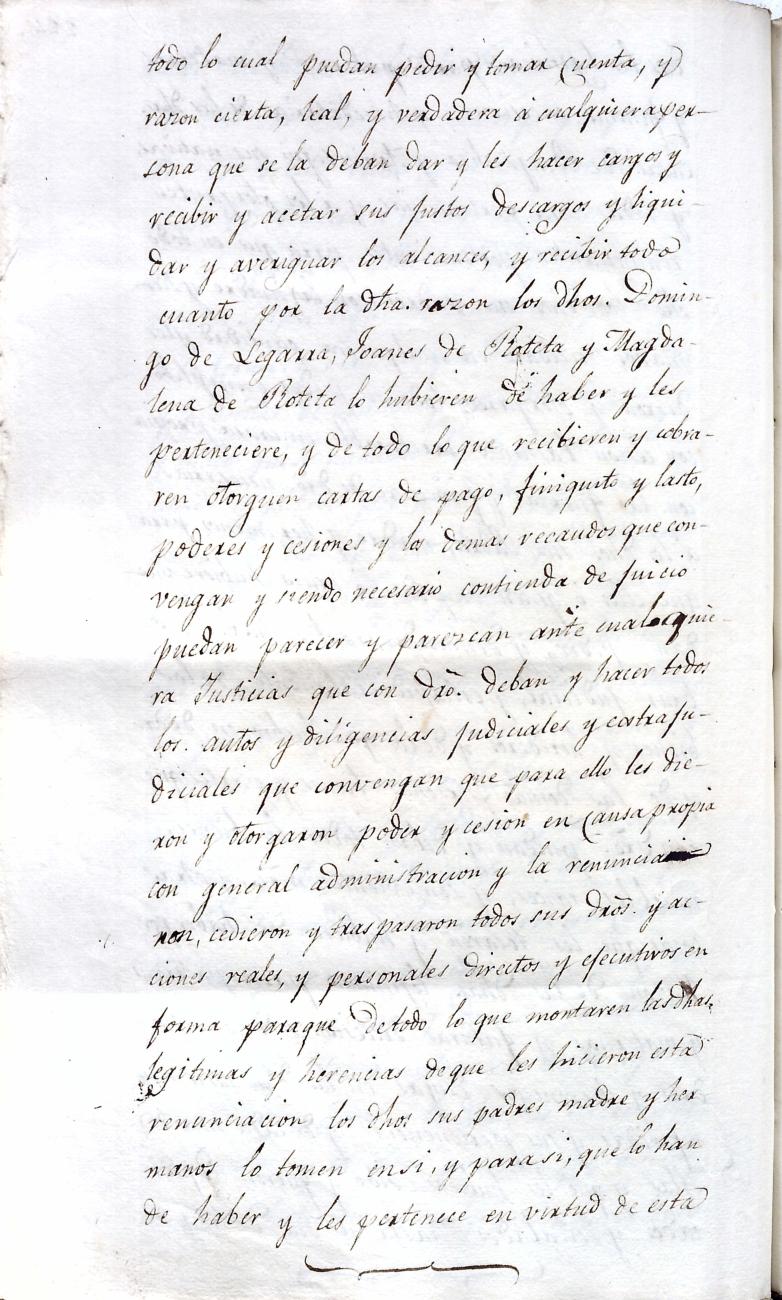 todo lo cual puedan pedir y tomar Cuenta, y
razon cierta, leal, y verdadera á cualquiera per-
sona que se la deban dar y les hacer cargos y
recibir y acetar sus justos descargos y liqui-
dar y averiguar los alcances, y recibir todo
cuanto por la dha. razon los dhos. Domin-
go de Legarra, Joanes de Roteta y Magda-
lena de Roteta lo hubieren de haber y les
perteneciere, y de todo lo que recibieren y cobra-
ren otorguen cartas de pago, finiquito y lasto,
poderes y cesiones y los demas recaudos que con-
vengan y siendo necesario contienda de juicio
puedan parecer y parezcan ante cualesquie-
ra Justicias que con dro. deban y hacer todos
los. autos y diligencias judiciales y estraju-
diciales que convengan que para ello les die-
ron y otorgaron poder y cesion en Causa propia
con general administracion y la renuncia
ron, cedieron y traspasaron todos sus dros. y ac-
ciones reales, y personales directos y ejecutivos en
forma paraque de todo lo que montaren las dhas.
legitimas y herencias de que les hicieron esta
renunciacion los dhos sus padres madre y her
manos lo tomen en si, y para si, que lo han
de haber y les pertenece en virtud de esta